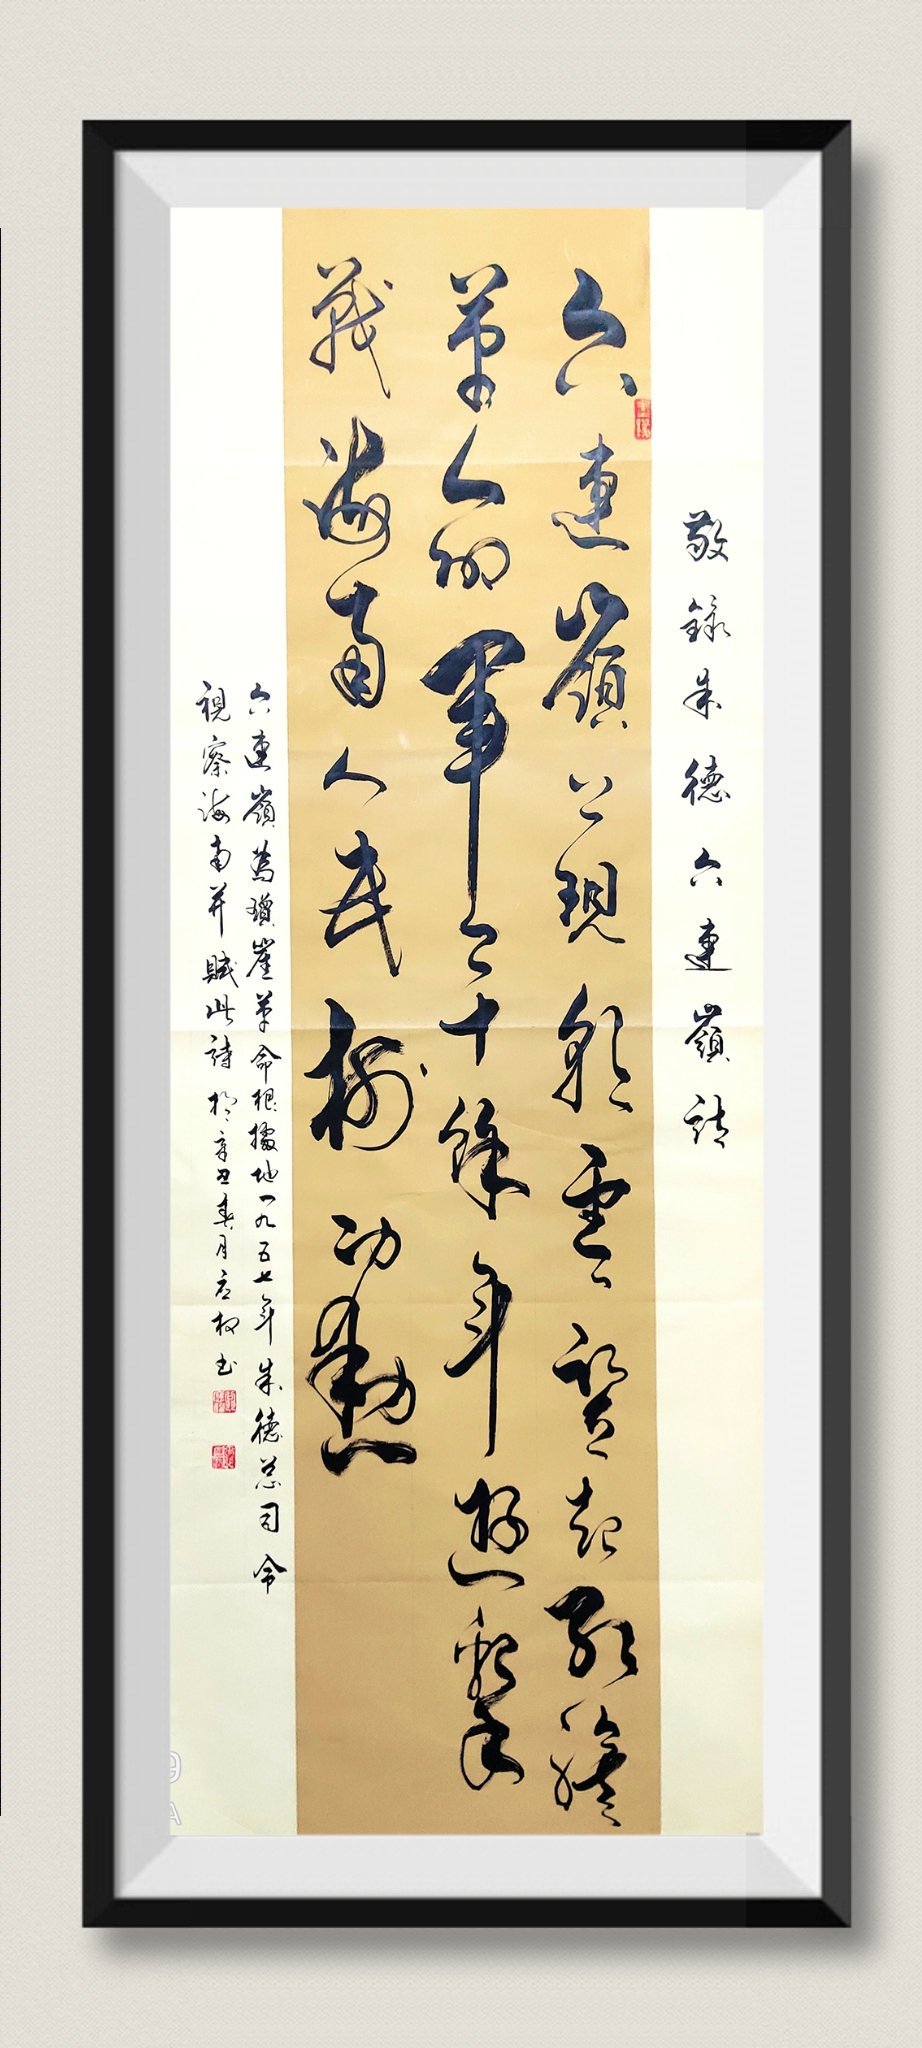 敬錄朱德六連嶺詩
六連嶺上現彩雲竪起紅旗
革命軍二十餘年遊擊
戰海南人民樹功勳
六連嶺為瓊崖革命根據地一九五七年朱德总司令
視察海南并賦此詩於辛丑春月应权书